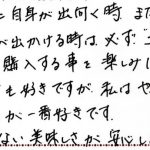 自身が出向く時 ま
が出かける時は 必ず"
購入する事を 楽しみ
も好きですが、私は や
が一番好きです。
ない美味しさが、安心し